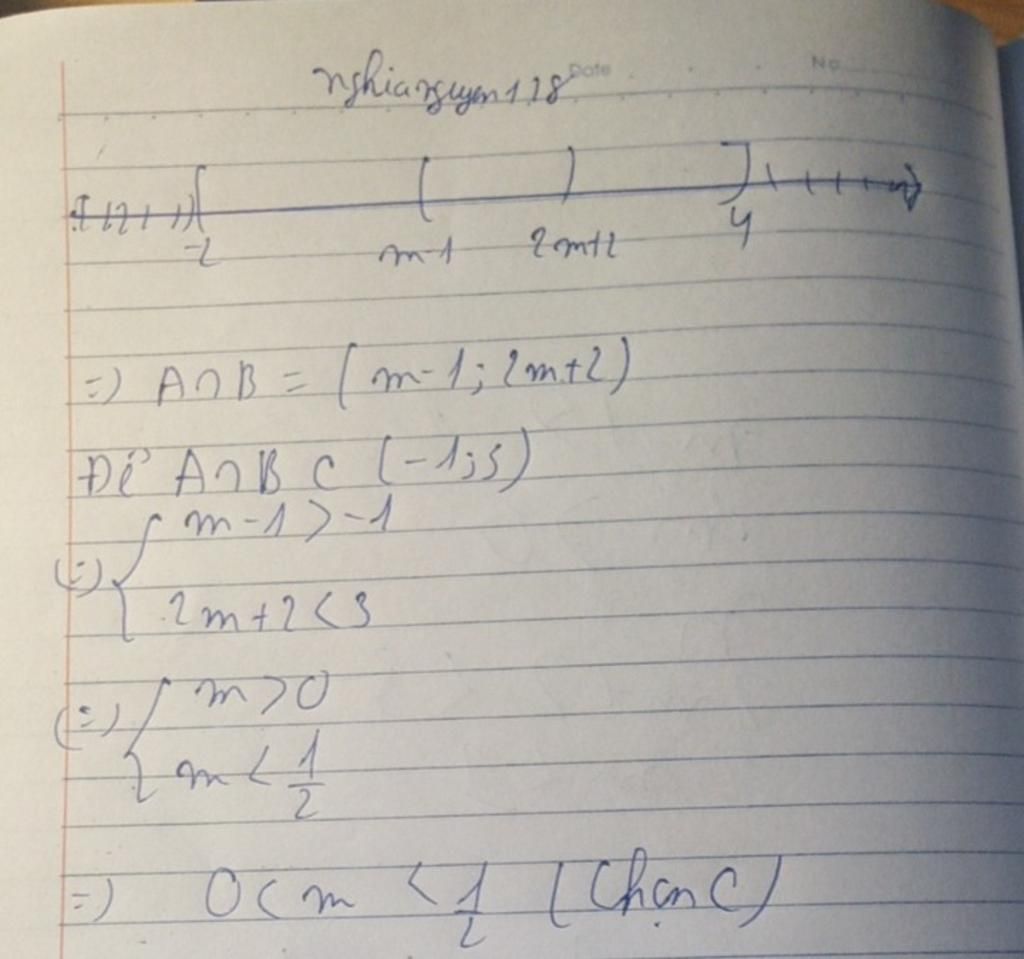 nghianguyen118
Date No
-2 m-1 2m+2 4
=) A∩B = (m-1; 2m+2)
Để A∩B ⊂ (-1;3)
(=) { m-1 > -1
2m+2 < 3
(=) { m > 0
m < 1/2
=) 0 < m < 1/2 (Chọn C)